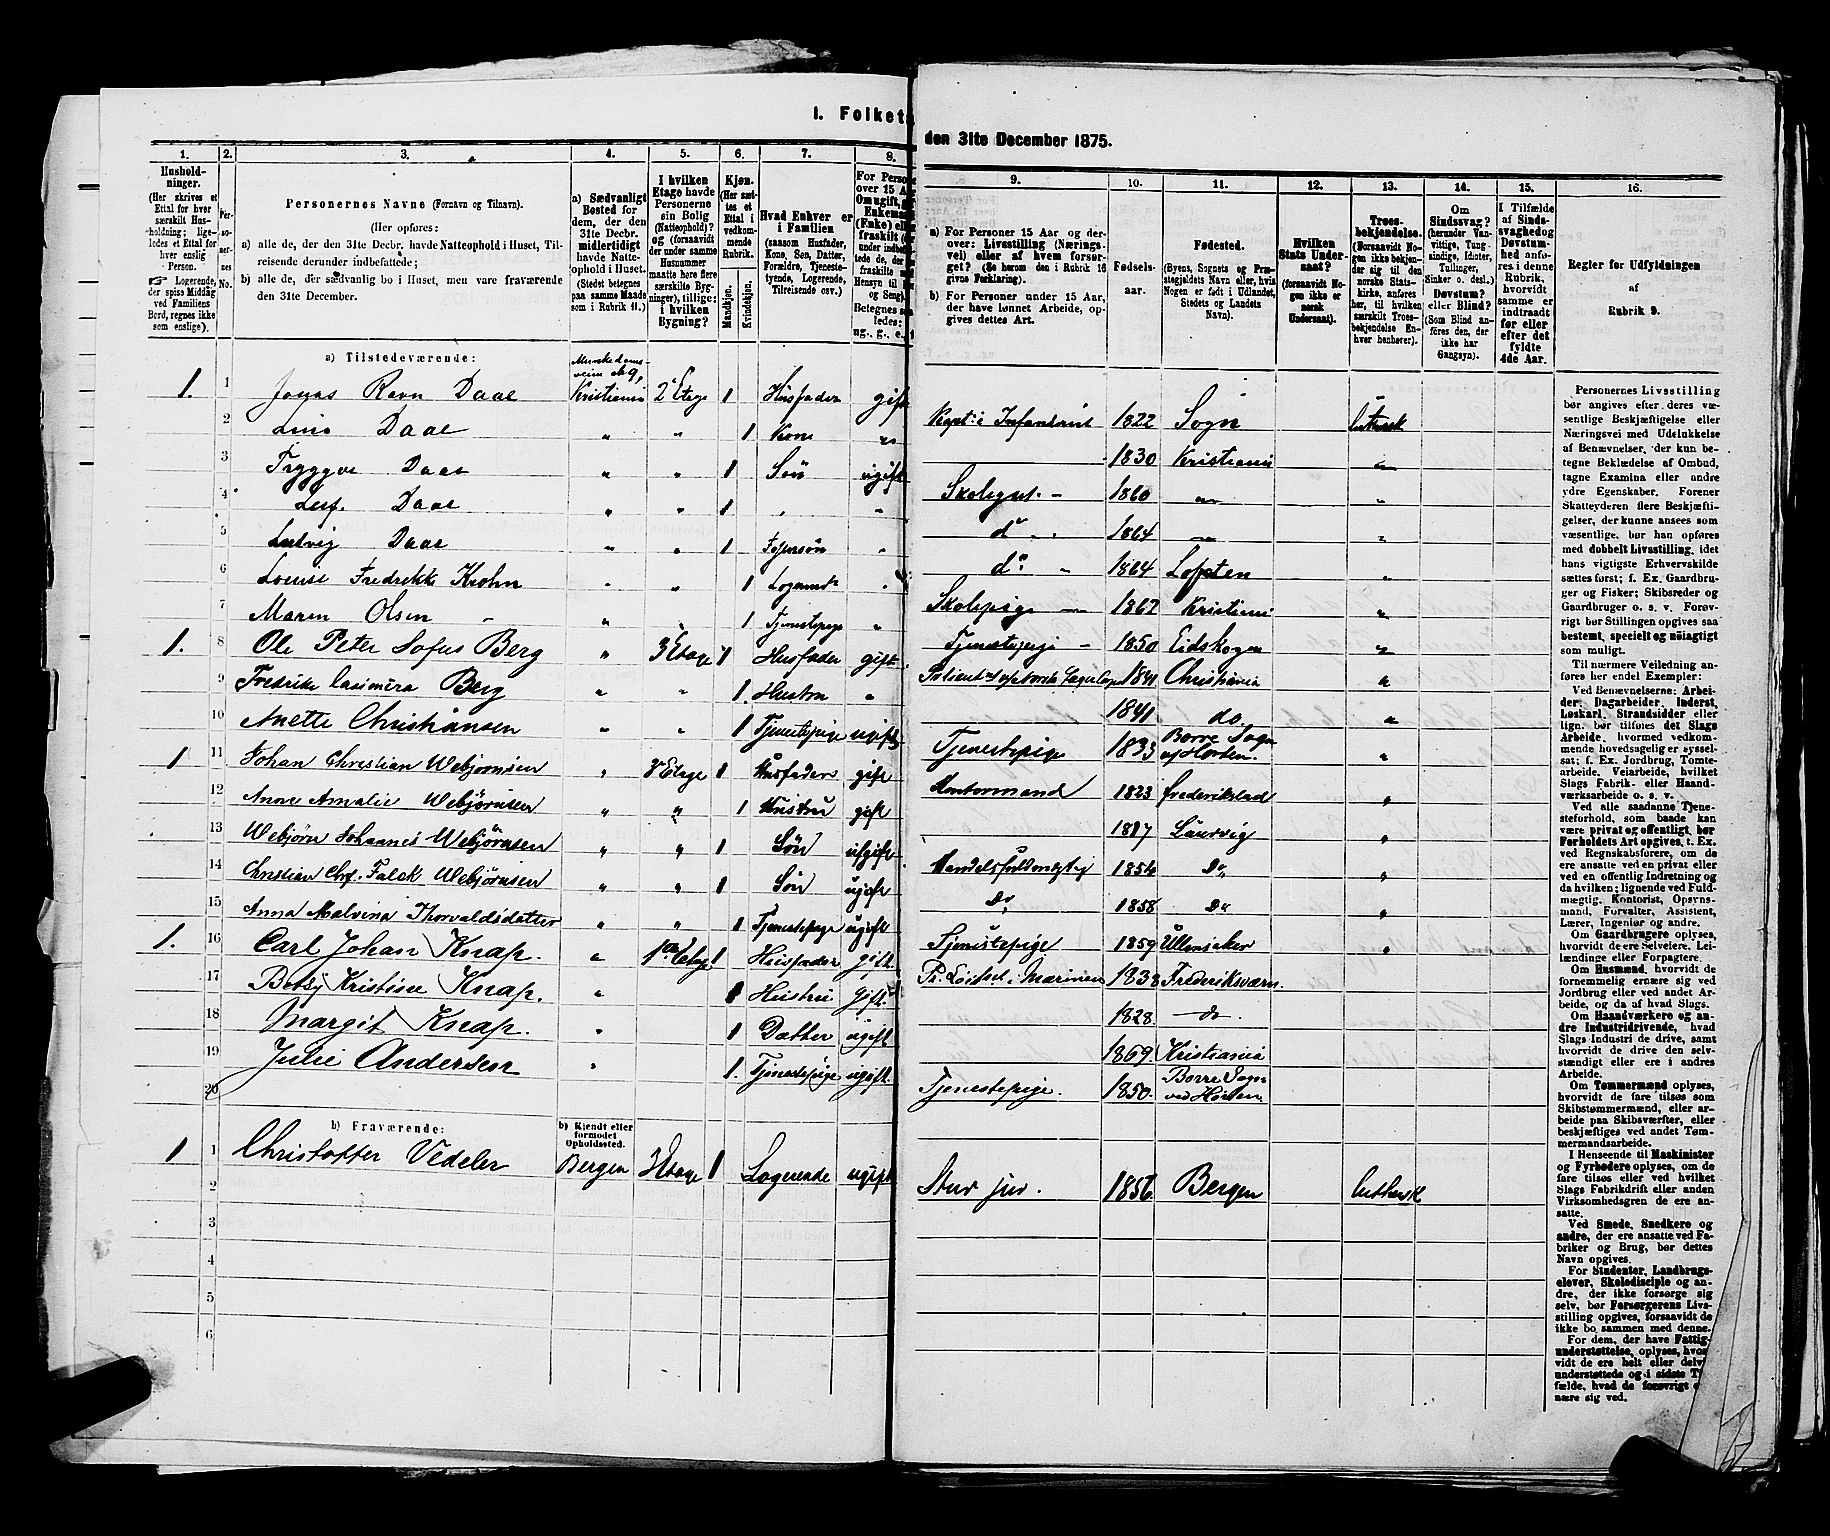 I. Folket
den 31te December 1875.
1. 2. 3. 4. 5. 6. 7. 8. 9. 10. 11. 12. 13. 14. 15. 16.
Husholdninger.
(Her skrives et Ettal for hver særskilt Husholdning; ligeledes et Ettal for hver enslig Person.
☞ Logerende, der spise Middag ved Familiens Bord, regnes ikke som enslige).
Personernes No.
Personernes Navne (Fornavn og Tilnavn).
(Her opføres:
a) alle de, der den 31te Decbr. havde Natteophold i Huset, Tilreisende derunder indbefattede;
b) alle de, der sædvanlig bo i Huset, men vare fraværende den 31te December.
a) Sædvanligt Bosted for dem, der den 31te Decbr. midlertidigt havde Natteophold i Huset. (Stedet betegnes paa samme Maade som i Rubrik 11.)
I hvilken Etage havde Personerne sin Bolig (Natteophold)? og (forsaavidt der under samme Husnummer maatte høre flere særskilte Bygninger), tillige: i hvilken Bygning?
Kjøn. (Her sættes et Ettal i vedkommende Rubrik.
Mandkjøn.
Kvindekjøn.
Hvad Enhver er i Familien
(saasom Husfader, Kone, Søn, Datter, Forældre, Tjenestetyende, Logerende, Tilreisende osv.)
a) For Personer 15 Aar og derover: Livsstilling (Næringsvei) eller af hvem forsørget? (Se herom den i Rubrik 16 givne Forklaring).
b) For Personer under 15 Aar, der have lønnet Arbeide, opgives dettes Art.
Fødselsaar.
Fødested.
(Byens, Sognets og Præstegjeldets Navn eller, hvis Nogen er født i Udlandet, Stedets og Landets Navn).
Hvilken Stats Undersaat?
(forsaavidt Nogen ikke er norsk Undersaat).
Troesbekjendelse.
(Forsaavidt Nogen ikke bekjender sig til den norske Statskirke, anføres her, til hvilken særskilt Troesbekjendelse Enhver henhører).
Om Sindssvag? (herunder Vanvittige, Tungsindige, Idioter, Tullinger, Sinker o. desl.) Døvstum? eller Blind? (Som Blind anføres den, der ikke har Gangsyn).
I Tilfælde af Sindssvaghed og Døvstumhed anføres i denne Rubrik, hvorvidt samme er indtraadt før eller efter det fyldte 4de Aar.
Regler for Udfyldningen af Rubrik 9.
a) Tilstedeværende:
1. 1 Jonas Ravn Daae Kristiania 2 Etage 1 Husfader gift Kapt: i Infanteriet 1822 Sogn Luthersk
2 Daae „ „ 1 Kone „ 1830 Kristiania „
3 Tryggve Daae „ „ 1 Søn ugift 1860 „ „
4 Daae „ „ 1 „ d° 1864 „ „
5 Ludvig Daae „ „ 1 „ d° 1864 Lofoten „
6 Louise Fredrikke Krohn „ „ 1 „ Skolepige 1862 Kristiania „
7 Maren Olsen „ 1 Tjenestepige „ Tjenestepige 1850 Eidskogen „
1. 8 Ole Peter Sofus Berg „ 3 Etage 1 Husfader gift 1841 Christiania „
9 Fredrike Casimira Berg „ „ 1. Hustru „ 1841 do. „
10 Anette Christiansen „ „ 1 Tjenestepige ugift Tjenestepige 1833 Borre Sogn af Horten. „
1 11 Johan Christian Webjørnsen „ 3 Etage 1 Husfader gift Kontormand 1823 Frederikstad „
12 Anne Amalie Webjørnsen „ „ 1 Hustru gift Laurvig „
13 Webjørn Johannes Webjørnsen „ „ 1 Søn ugift 1854 Do „
14 Christian Chr. Falck Webjørnsen „ „ 1 Søn ugift Do 1858 Do „
15 Anna Malvina Thorvaldsdatter „ „ 1 Tjenestepige ugift Tjenestepige 1859 Ullensaker „
1. 16 Carl Johan Knap. „ 1 Etage 1 Husfader gift Marinen 1838 Frederiksværn.
17 Betsy Kristine Knap. „ 1 Hustru Gift 1828. do.
18 Margit Knap. „ 1 Datter ugift 1869. Kristiania
19 Julie Andersen „ 1. Tjenestepige ugift. Tjenestepige. 1850. Borre Sogn ved Horten.
20
b) Fraværende:
b) Kjendt eller formodet Opholdssted.
1 1 Christoffer Vedeler Bergen 3 Etage 1 Logerende ugift Stud jur. 1856. Bergen Luthersk
2
3
4
5
6
Personernes Livsstilling bør angives efter deres væsentlige Beskjæftigelse eller Næringsvei med Udelukkelse af Benævnelser, der kun betegne Beklædelse af Ombud, tagne Examina eller andre ydre Egenskaber. Forener Skatteyderen flere Beskjæftigelser, der kunne ansees som væsentlige, bør han opføres med dobbelt Livsstilling, idet hans vigtigste Erhvervskilde sættes først; f. Ex. Gaardbruger og Fisker; Skibsreder og Gaardbruger o. s. v. Forøvrigt bør Stillingen opgives saa bestemt, specielt og nøiagtigt som muligt.
Til nærmere Veiledning anføres her endel Exempler:
Ved Benævnelserne: Arbeider, Dagarbeider, Inderst, Løskarl, Strandsidder eller lign. bør tilføies det Slags Arbeide, hvormed vedkommende hovedsagelig er sysselsat; f. Ex. Jordbrug, Tomtearbeide, Veiarbeide, hvilket Slags Fabrik- eller Haandværksarbeide o. s. v.
Ved alle saadanne Tjenesteforhold, som baade kan være privat og offentligt, bør Forholdets Art opgives, t. Ex. ved Regnskabsførere, om de ere ansatte ved en privat eller ved en offentlig Indretning og da hvilken; lignende ved Fuldmægtig, Kontorist, Opsynsmand, Forvalter, Assistent, Lærer, Ingeniør og andre.
Om Gaardbrugere oplyses, hvorvidt de ere Selveiere, Leilændinge eller Forpagtere.
Om Husmænd, hvorvidt de fornemmelig ernære sig ved Jordbrug eller ved andet Arbeide, og da af hvad Slags.
Om Haandværkere og andre Industridrivende, hvad Slags Industri de drive, samt hvorvidt de drive den selvstændigt eller ere i andres Arbeide.
Om Tømmermænd oplyses, hvorvidt de fare tilsøs som Skibstømmermænd, eller arbeide paa Skibsværfter, eller beskjæftiges ved andet Tømmermandsarbeide.
I Henseende til Maskinister og Fyrbødere oplyses, om de fare tilsøs eller ved hvilket Slags Fabrikdrift eller anden Virksomhedsgren de ere ansatte.
Ved Smede, Snedkere og andre, der ere ansatte ved Fabriker og Brug, bør dettes Navn opgives.
For Studenter, Landbrugselever, Skoledisciple og andre, der ikke forsørge sig selv, bør Forsørgerens Livsstilling opgives, forsaavidt de ikke bo sammen med denne.
For dem, der have Fattigunderstøttelse, oplyses, hvorvidt de ere helt eller delvis understøttede og i sidste Tilfælde, hvad de forøvrigt ernære sig ved.